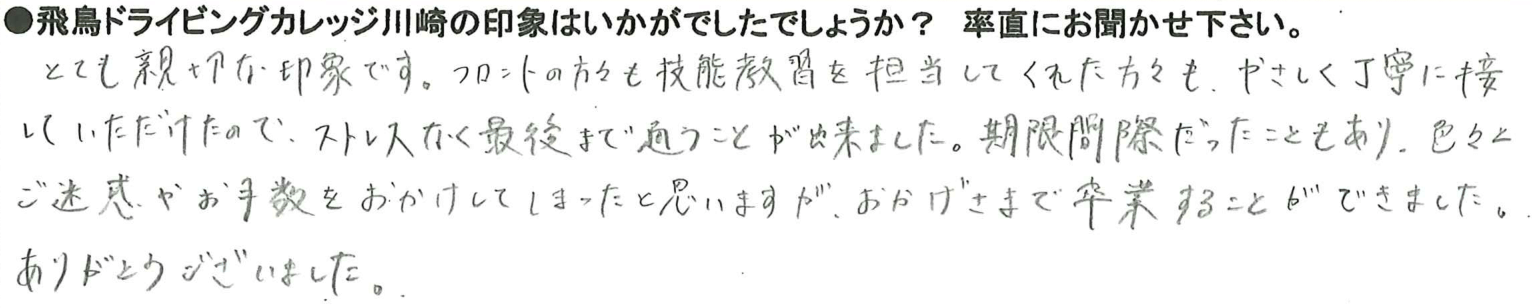 ●飛鳥ドライビングカレッジ川崎の印象はいかがでしたでしょうか？ 率直にお聞かせ下さい。
とても親切な印象です。フロントの方々も技能教習を担当してくれた方々も、やさしく丁寧に接
していただけたので、ストレスなく最後まで通うことが出来ました。期限間際だったこともあり、色々と
ご迷惑やお手数をおかけしてしまったと思いますが、おかげさまで卒業することができました。
ありがとうございました。